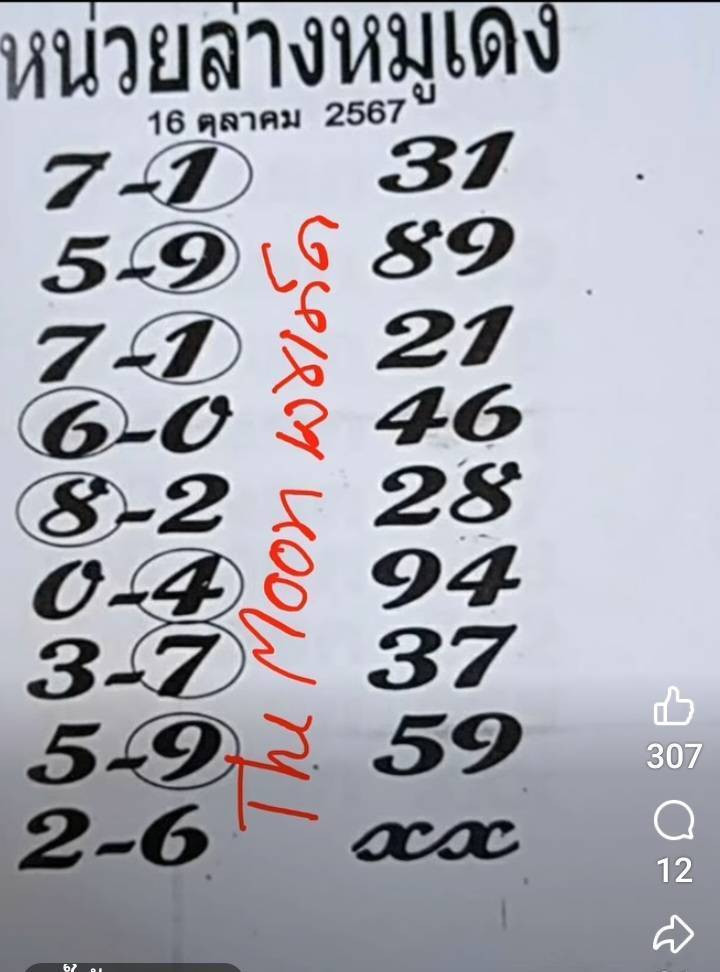 หน่วยล่างหมูเด้ง
16 ตุลาคม 2567
7-1 31
5-9 89
7-1 21
6-0 46
8-2 28
0-4 94
3-7 37
5-9 59
2-6 xx
307
12